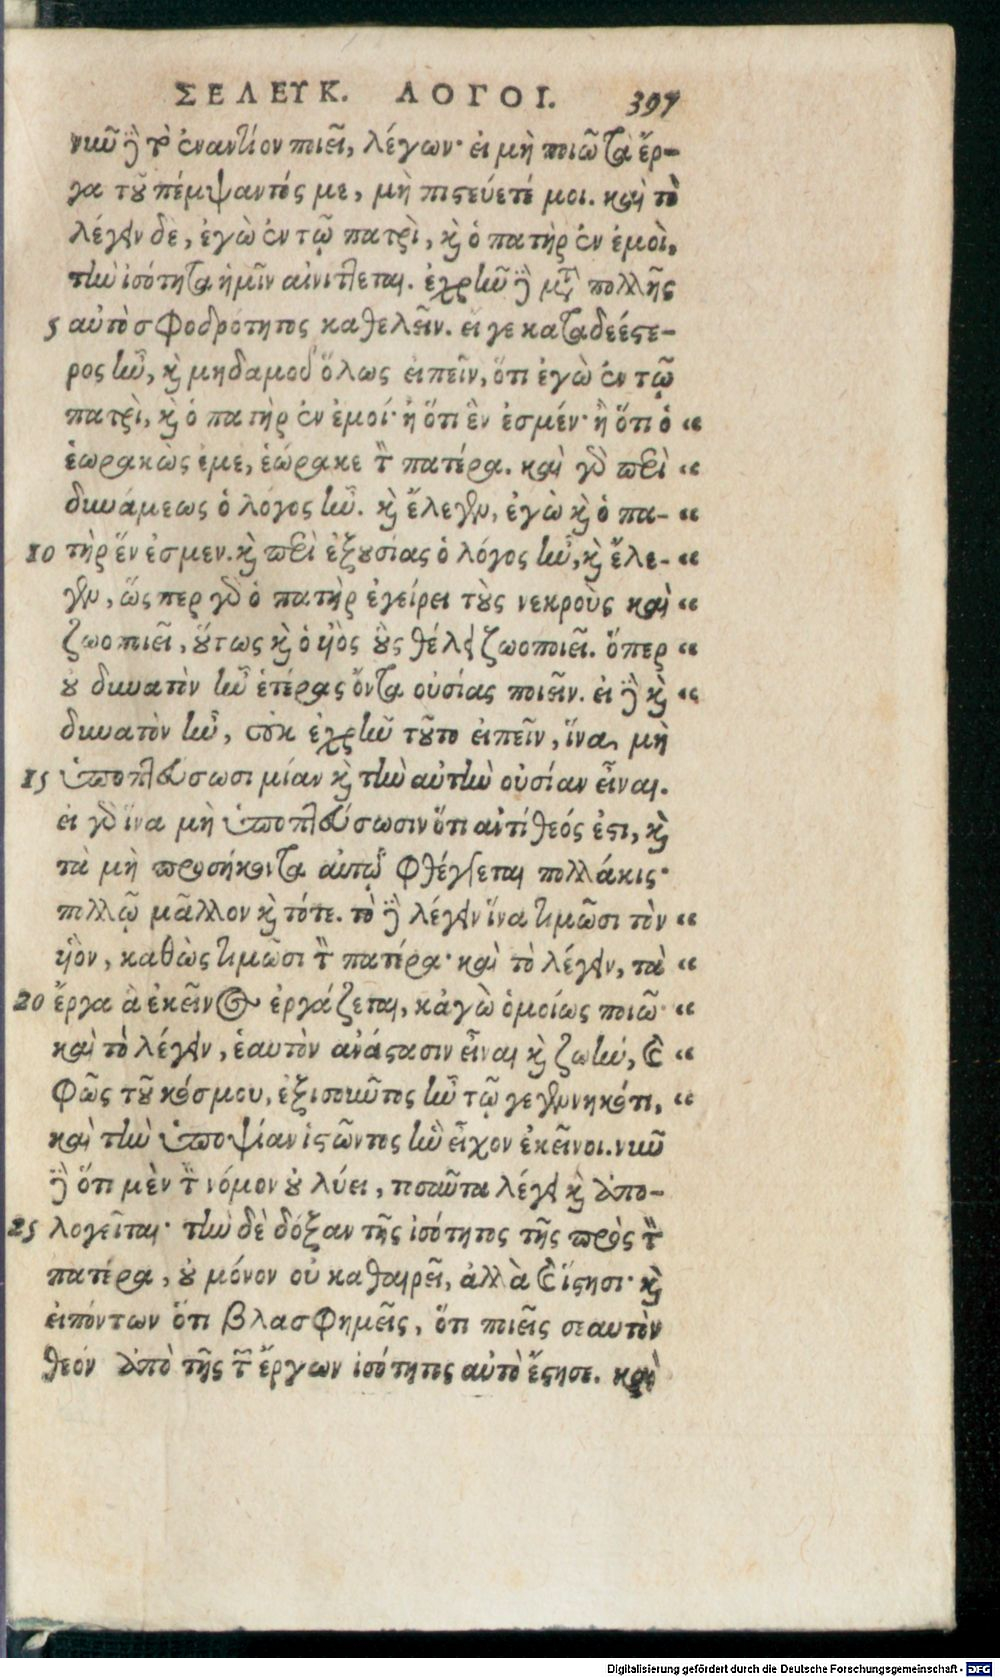 ΣΕΛΕΥΚ. ΛΟΓΟΙ. 397
νῦν δὲ τὸ ἐναντίον ποιεῖ, λέγων· εἰ μὴ ποιῶ τὰ ἔρ-
γα τοῦ πέμψαντός με, μὴ πιστεύετέ μοι. καὶ τὸ
λέγειν δὲ, ἐγὼ ἐν τῷ πατρὶ, καὶ ὁ πατὴρ ἐν ἐμοὶ,
τὴν ἰσότητα ἡμῖν αἰνίττεται. ἐχρῆν δὲ μετὰ πολλῆς
5 αὐτὸ σφοδρότητος καθελεῖν. εἴ γε καταδεέστε-
ρος ἦν, καὶ μηδαμοῦ ὅλως εἰπεῖν, ὅτι ἐγὼ ἐν τῷ
πατρὶ, καὶ ὁ πατὴρ ἐν ἐμοί· ἢ ὅτι ἓν ἐσμέν· ἢ ὅτι ὁ “
ἑωρακὼς ἐμε, ἑώρακε τὸν πατέρα. καὶ γὰρ περὶ “
δυνάμεως ὁ λόγος ἦν. καὶ ἔλεγεν, ἐγὼ καὶ ὁ πα- “
10 τὴρ ἕν ἐσμεν. καὶ περὶ ἐξουσίας ὁ λόγος ἦν, καὶ ἔλε- “
γεν, ὥσπερ γὰρ ὁ πατὴρ ἐγείρει τοὺς νεκροὺς καὶ “
ζωοποιεῖ, οὕτως καὶ ὁ υἱὸς οὓς θέλει ζωοποιεῖ. ὅπερ “
οὐ δυνατὸν ἦν ἑτέρας ὄντα οὐσίας ποιεῖν. εἰ δὲ καὶ “
δυνατὸν ἦν, οὐκ ἐχρῆν τοῦτο εἰπεῖν, ἵνα μὴ
15 ὑποπτεύσωσι μίαν καὶ τὴν αὐτὴν οὐσίαν εἶναι.
εἰ γὰρ ἵνα μὴ ὑποπτεύσωσιν ὅτι ἀντίθεός ἐστι, καὶ
τὰ μὴ προσήκοντα αὐτῷ φθέγγεται πολλάκις·
πολλῷ μᾶλλον καὶ τότε. τὸ δὲ λέγειν ἵνα τιμῶσι τὸν “
υἱὸν, καθὼς τιμῶσι τὸν πατέρα· καὶ τὸ λέγειν, τὰ “
20 ἔργα ἃ ἐκεῖνος ἐργάζεται, κἀγὼ ὁμοίως ποιῶ· “
καὶ τὸ λέγειν, ἑαυτὸν ἀνάστασιν εἶναι καὶ ζωὴν, καὶ “
φῶς τοῦ κόσμου, ἐξισοῦντος ἦν τῷ γεγεννηκότι, “
καὶ τὴν ὑποψίαν ἱστῶντος ἣν εἶχον ἐκεῖνοι. νῦν
δὲ ὅτι μὲν τὸν νόμον οὐ λύει, τοσαῦτα λέγει καὶ ἀπο-
25 λογεῖται· τὴν δὲ δόξαν τῆς ἰσότητος τῆς πρὸς τὸν
πατέρα, οὐ μόνον οὐ καθαιρεῖ, ἀλλὰ καὶ ἵστησι· καὶ
εἰπόντων ὅτι βλασφημεῖς, ὅτι ποιεῖς σεαυτὸν
θεόν ἀπὸ τῆς τῶν ἔργων ἰσότητος αὐτὸ ἔστησε. καὶ
Digitalisierung gefördert durch die Deutsche Forschungsgemeinschaft - DFG